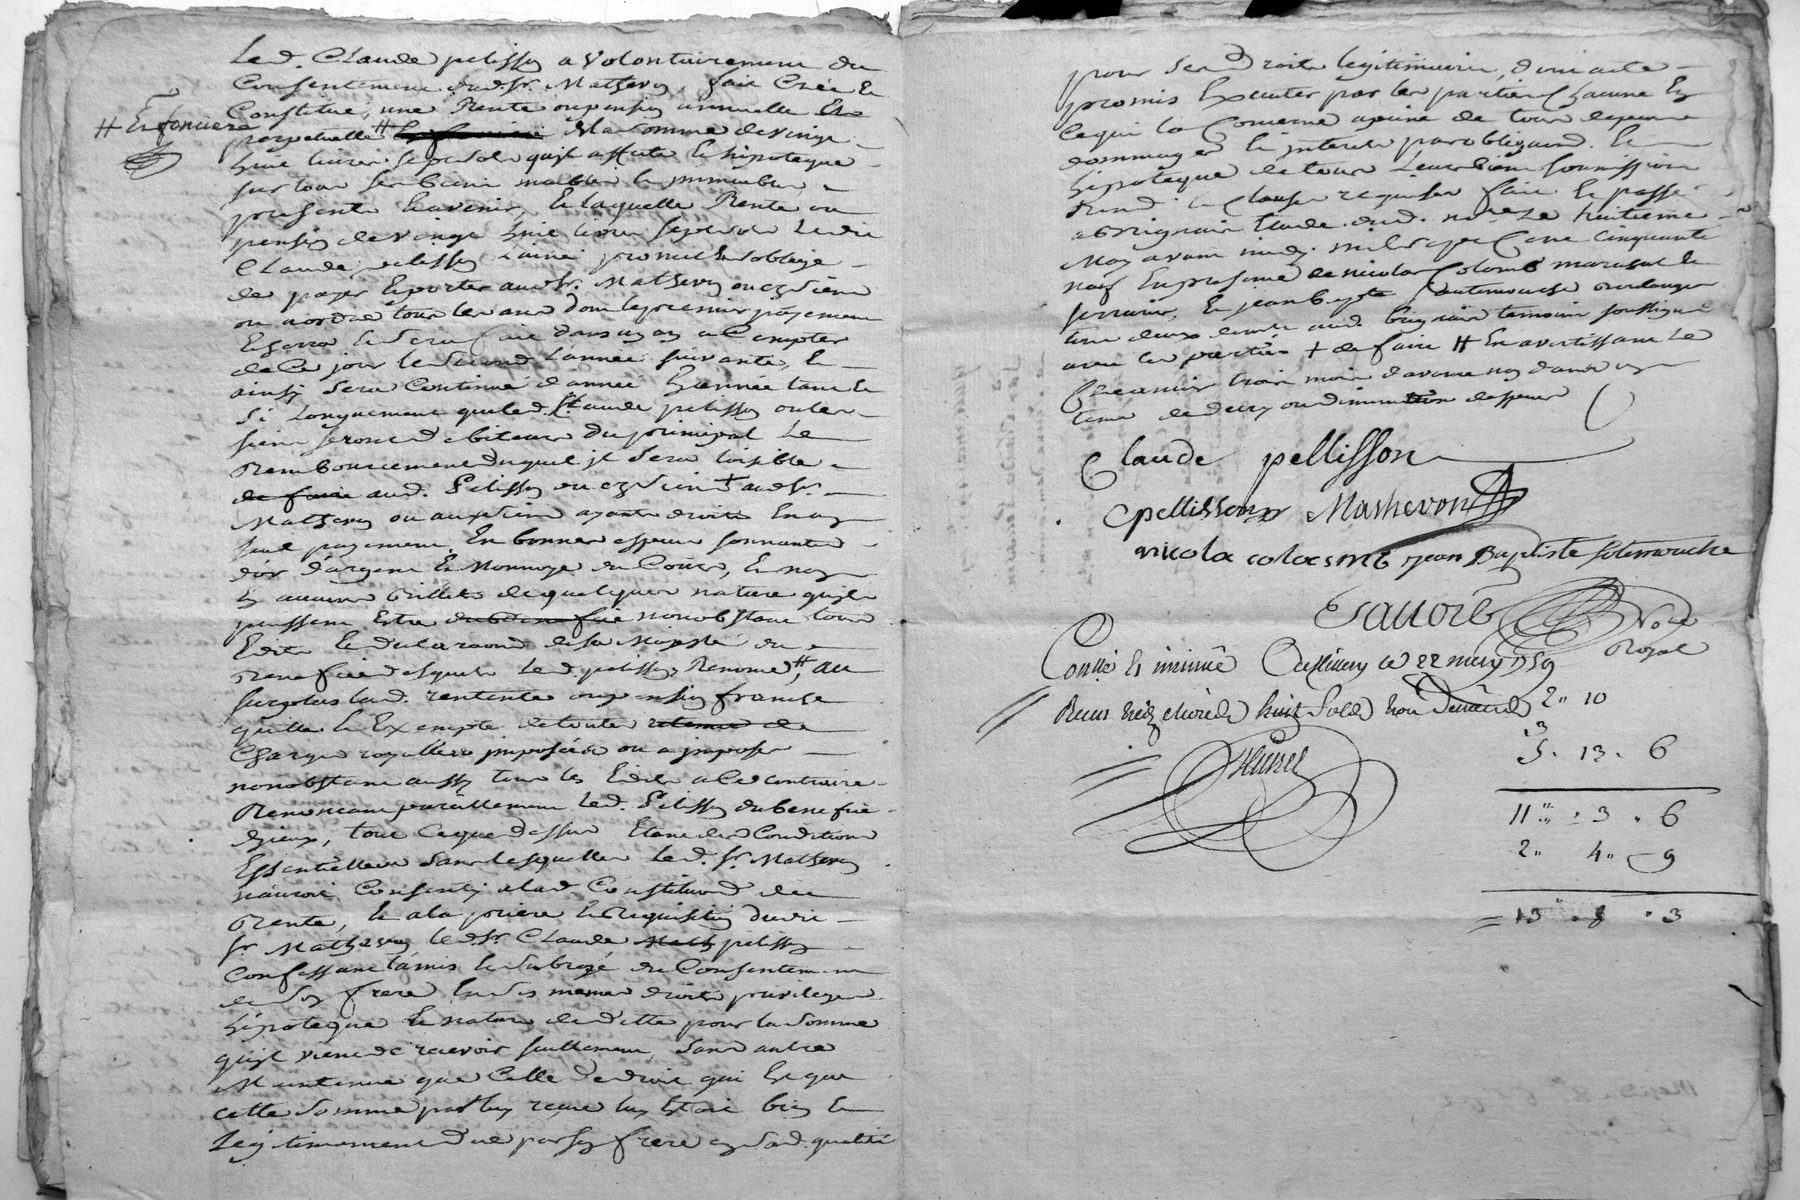 Led. Claude pelisson a Volontairement du
Consentement dud. Sr. Mathevon, fait Créé et
Constitué, une Rente ou pension annuelle et
# Et fonciere
perpetuelle # de la somme de vingt
huit livres sept sols quil affecte et hipoteque
sur tous ses biens meubles et immeubles
presents et avenir, et laquelle Rente ou
pension de vingt huit livres sept sols ledit
Claude pelisson l'ainé promet et s'oblige
de payer et porter aud. Sr. Mathevon ou és siens
ou a ordre tous les ans dont le premier payement
et sera fait dans un an a Compter
de Ce jour le second l'année suivante, et
ainsy sera Continué d'année en année tant et
si Longuement que led. Claude pelisson ou les
siens seront debiteurs du principal le
Remboursement duquel il sera loisible
de faire aud. Pelisson ou és siens + aud. Sr.
Mathevon ou aux siens ayants droits En un
seul payement En bonnes especes sonnantes
d'or d'argent et Monnoye du Cours, et non
en aucuns Billets de quelques nature quils
puissent Estre nonobstant tous
Edits et declarations de sa Majesté au
Benefice desquels led. pelisson Renonce #, au
surplus lad. rente ou pension franche
quitte et Exempte de toute de
Charges royalles imposées ou a imposer
nonobstant aussy tous les Edits a Ce contraire
Renonceant pareillement led. Pelisson au benefice
d'yceux, tout Ceque dessus Etant des Conditions
Essentielles sans lesquelles led. Sr. Mathevon
n'auroit Consenty a lad. Constitution de
Rente, et a la priere et Requisition dudit
Sr. Mathevon led. Sr. Claude pelisson
Confessant l'a mis et subrogé du Consentement
de son frere En ses memes droits privileges
hipoteque et nature de dette pour la somme
qu'il vient de recevoir seullement, sans autre
Maintenue que Celle de droit qui Est que
cette somme par luy reçue luy Etoit bien et
Legitimement due par son frere en sad. qualité
pour ses droits legitimaires, dont acte
promis Executer par les parties Chacune En
Cequi la Concerne a peine de tous depens
dommages et interets par obligation et
hipoteque de tous Leurs biens soumissions
Renon. et Clauses requises fait et passé
a Brignais Etude dud. not.re Le huitieme
May avant midy mil sept Cent Cinquante
neuf En presence de nicolas Colomb marechal et
serrurier, et jean bapte Solemouche boulanger
tous deux demts aud. brignais temoins soussignés
avec les parties + de faire # En avertissant Le
Creancier trois mois d'avance non dans un
tems de decry ou diminution d'especes
Claude pellisson
pellisson Mathevon
nicola colocsmb jean Baptiste solemouche
No.re
Royal
Conttlé et insinué le 22 may 1759
Reçu treize livres huit sols trois deniers
2 10
3
5. 13. 6
11 . 3 . 6
2 4 9
13 . 8 . 3